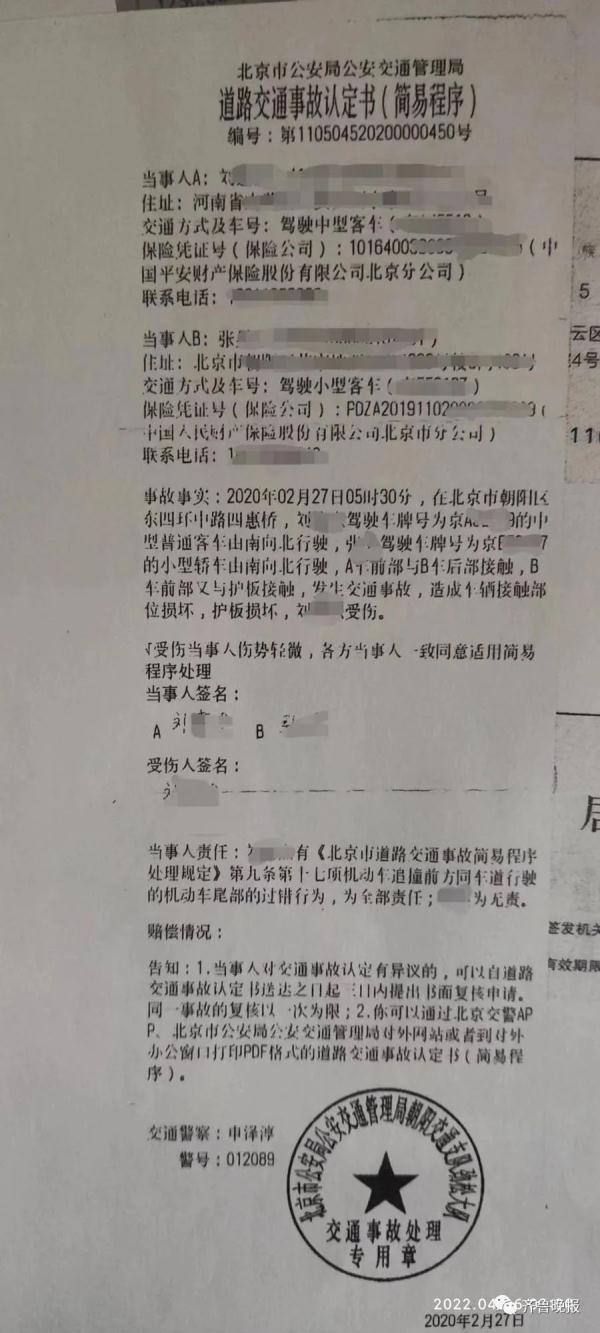 北京市公安局公安交通管理局
道路交通事故认定书(简易程序)
编号:第110504520200000450号
当事人A: 刘
住址: 河南省 号
交通方式及车号: 驾驶中型客车(
保险凭证号(保险公司): 1016400 (中
国平安财产保险股份有限公司北京分公司)
联系电话:
当事人B: 张
住址: 北京市
交通方式及车号: 驾驶小型客车( )
保险凭证号(保险公司): PDZA20191102 (
中国人民财产保险股份有限公司北京市分公司)
联系电话: 1
事故事实: 2020年02月27日05时30分, 在北京市朝阳区
东四环中路四惠桥, 刘 驾驶车牌号为京A 9的中
型普通客车由南向北行驶, 张 驾驶车牌号为京 7
的小型轿车由南向北行驶, A车前部与B车后部接触, B
车前部又与护板接触, 发生交通事故, 造成车辆接触部
位损坏, 护板损坏, 刘 受伤。
√受伤当事人伤势轻微, 各方当事人一致同意适用简易
程序处理
当事人签名:
A 刘 B
受伤人签名:
刘
当事人责任: 有《北京市道路交通事故简易程序
处理规定》第九条第十七项机动车追撞前方同车道行驶
的机动车尾部的过错行为, 为全部责任; 为无责。
赔偿情况:
告知: 1.当事人对交通事故认定有异议的, 可以自道路
交通事故认定书送达之日起三日内提出书面复核申请。
同一事故的复核以一次为限; 2.你可以通过北京交警AP
P、北京市公安局公安交通管理局对外网站或者到对外
办公窗口打印PDF格式的道路交通事故认定书(简易程
序)。
交通警察: 申泽淳
警号: 012089
北京市公安局公安交通管理局朝阳交通支队劲松大队
交通事故处理
专用章
2020年2月27日
族
5
云区
4号
11
居
签发机关
有效期限
2022.04
齐鲁晚报